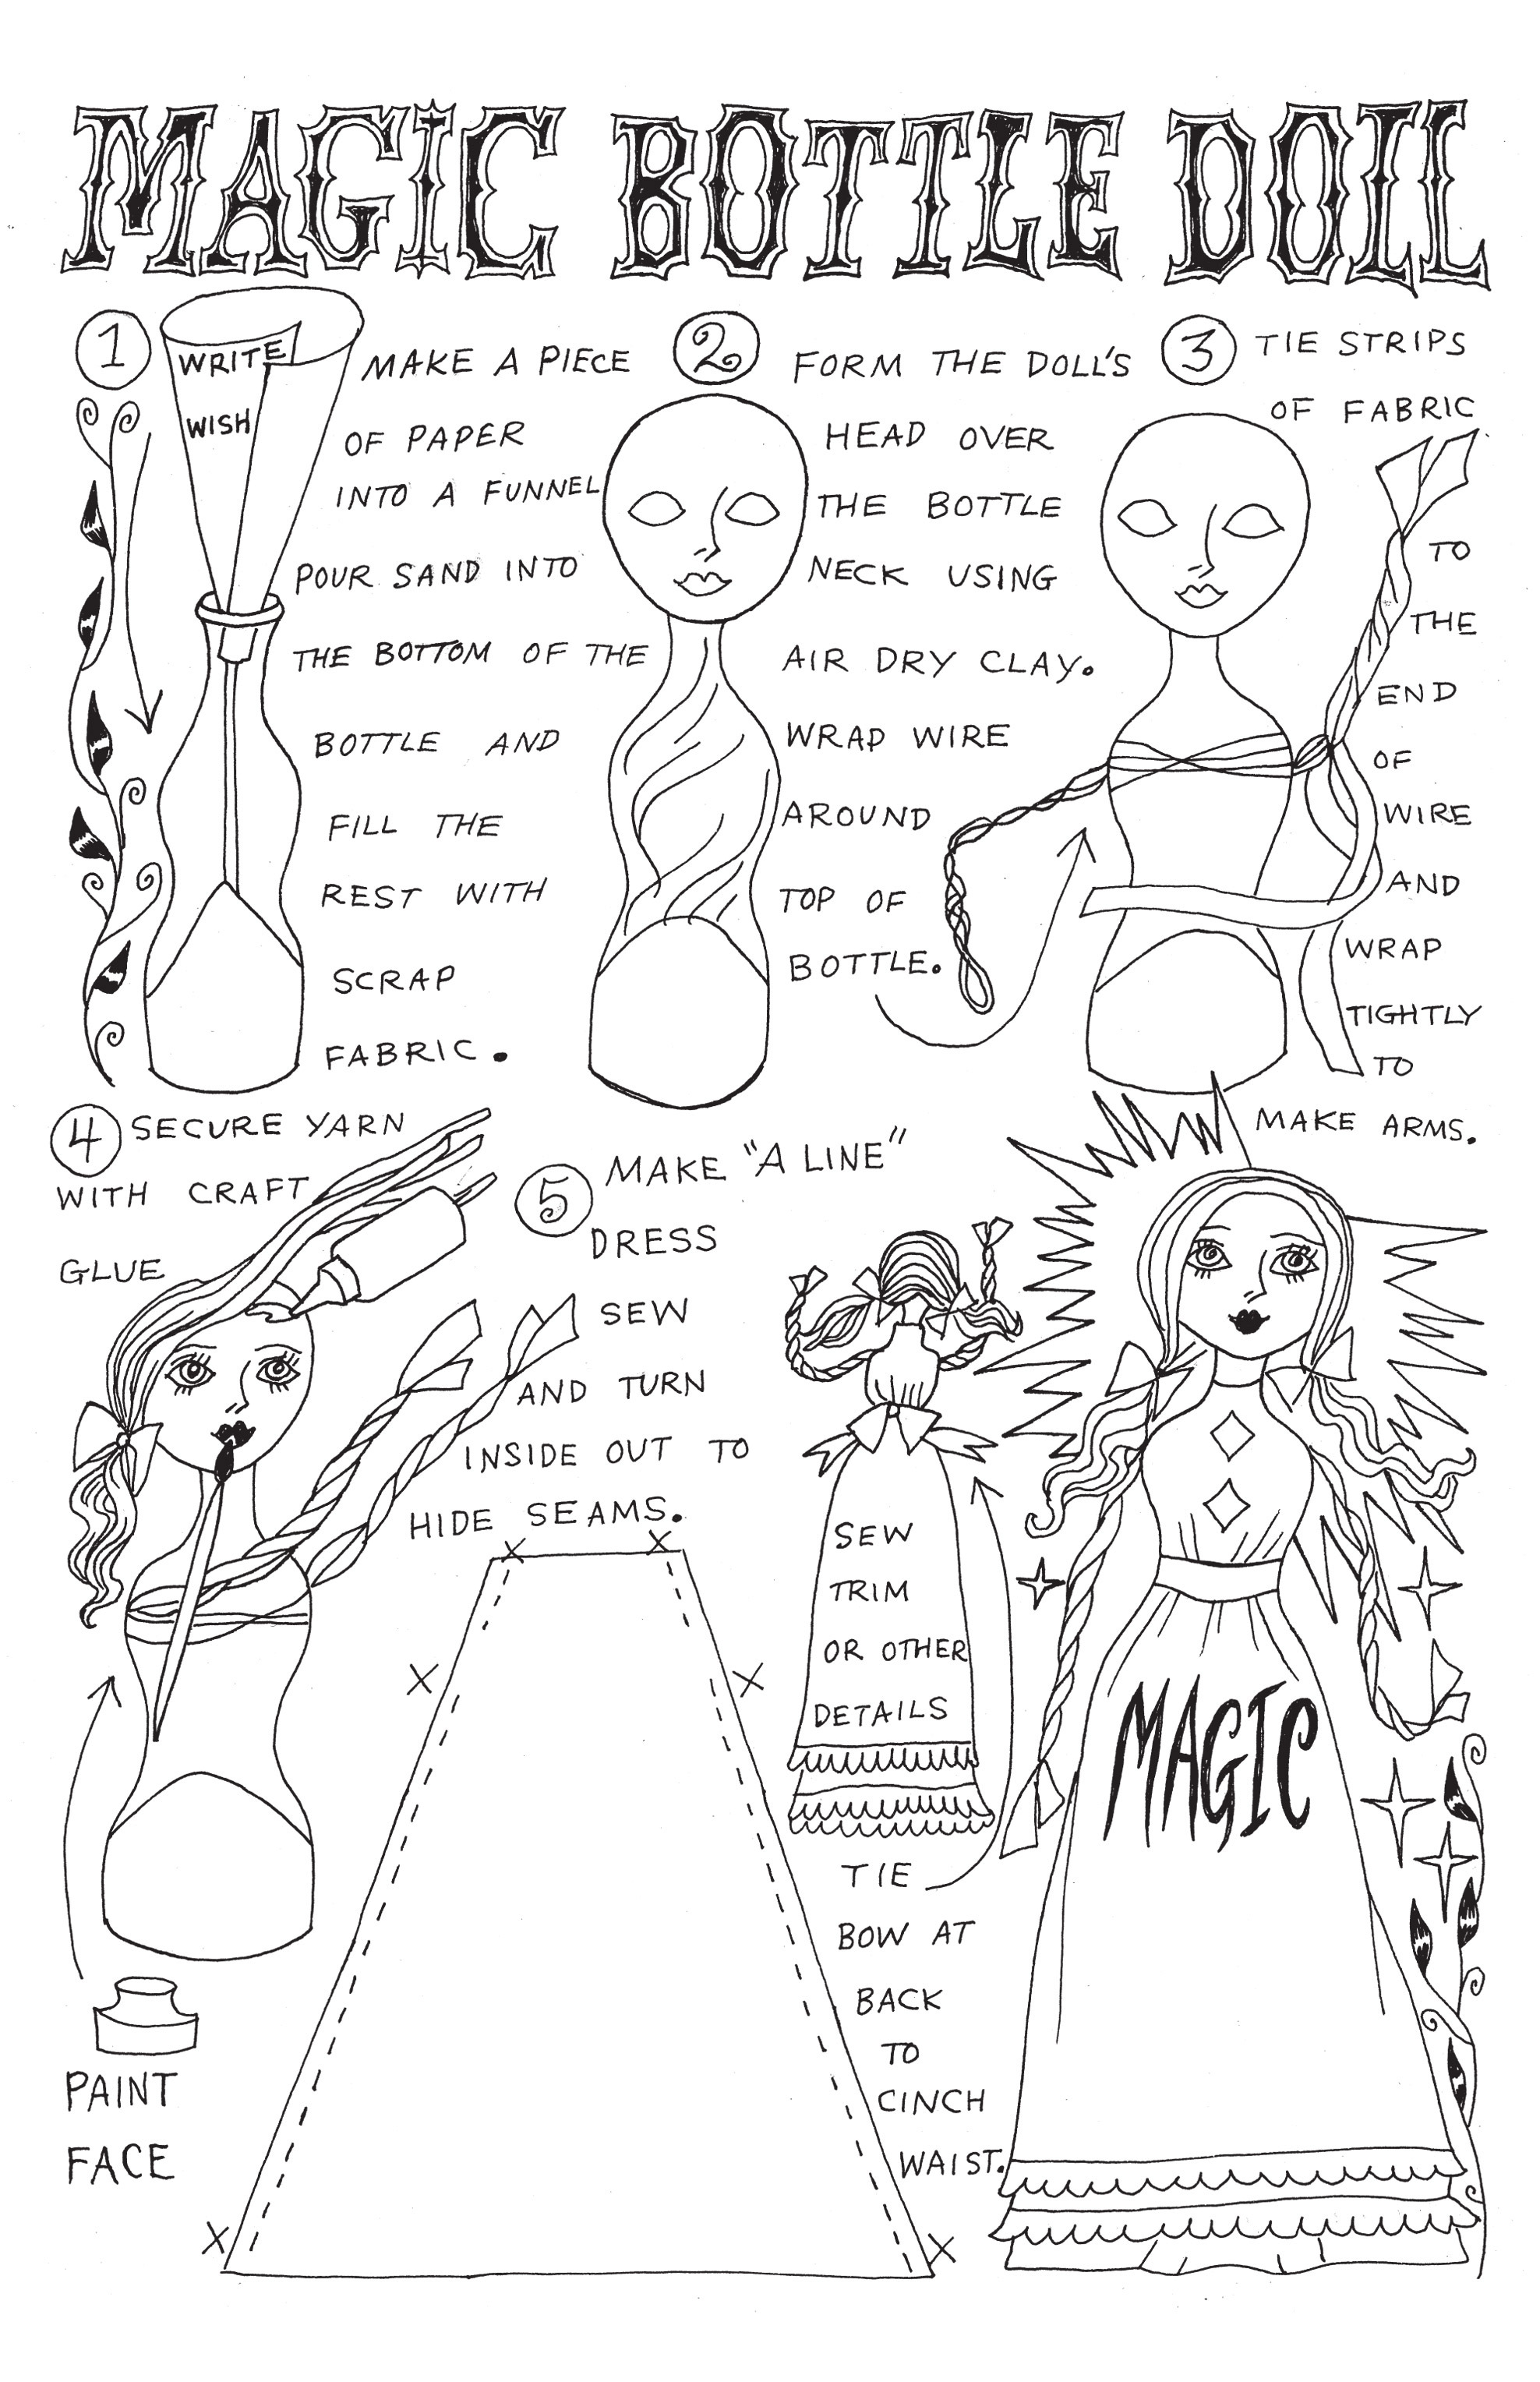 MAGIC BOTTLE DOLL
1
WRITE
WISH
MAKE A PIECE
OF PAPER
INTO A FUNNEL
POUR SAND INTO
THE BOTTOM OF THE
BOTTLE AND
FILL THE
REST WITH
SCRAP
FABRIC.
2
FORM THE DOLL'S
HEAD OVER
THE BOTTLE
NECK USING
AIR DRY CLAY.
WRAP WIRE
AROUND
TOP OF
BOTTLE.
3
TIE STRIPS
OF FABRIC
TO
THE
END
OF
WIRE
AND
WRAP
TIGHTLY
TO
MAKE ARMS.
4
SECURE YARN
WITH CRAFT
GLUE
PAINT
FACE
5
MAKE "A LINE"
DRESS
SEW
AND TURN
INSIDE OUT TO
HIDE SEAMS.
SEW
TRIM
OR OTHER
DETAILS
TIE
BOW AT
BACK
TO
CINCH
WAIST.
MAGIC